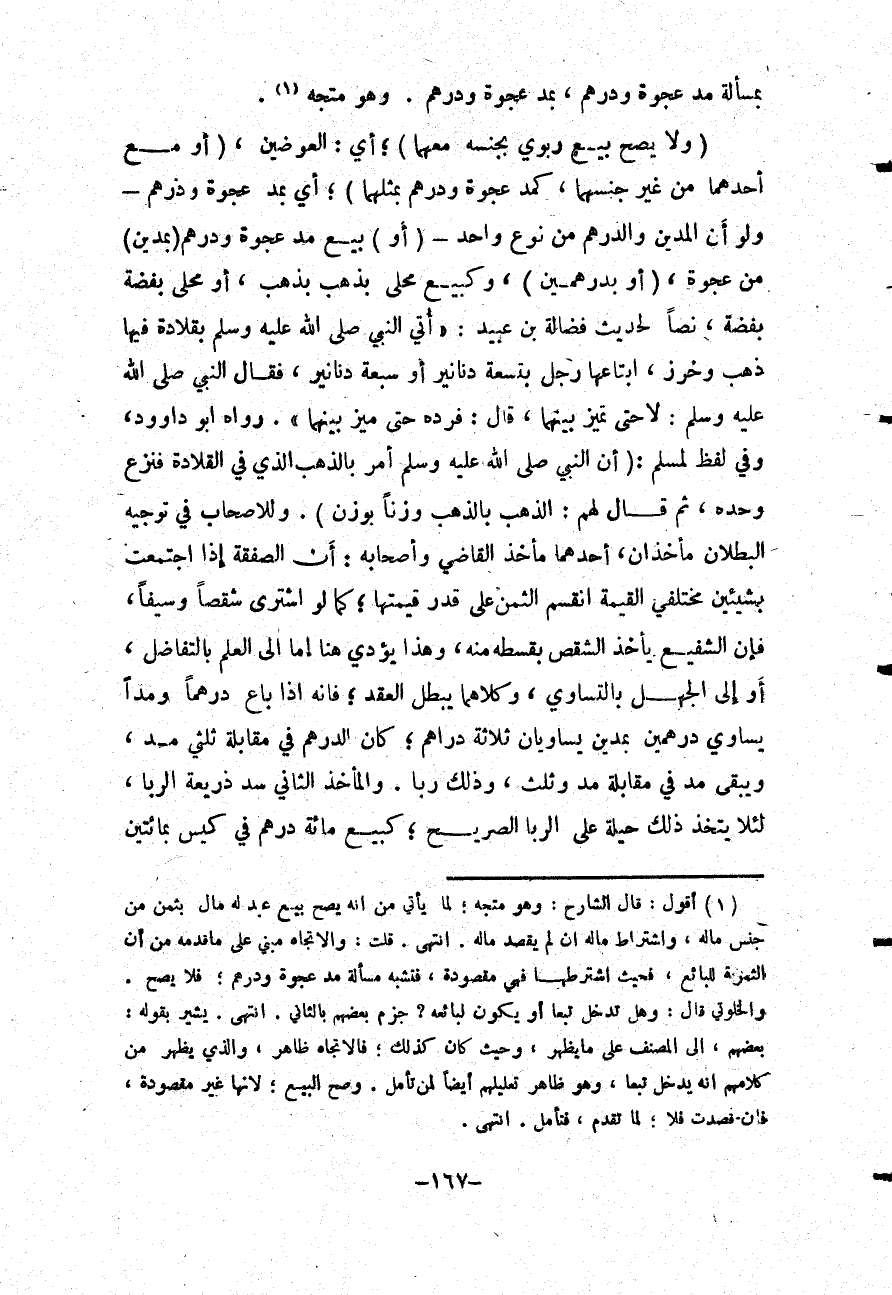 بمسألة مد عجوة ودرهم ، بمد عجوة ودرهم . وهو متجه (١) .
( ولا يصح بيع ربوي بجنسه معهما ) ؛ أي : العوضين ، ( أو مع
أحدهما من غير جنسهما ، كمد عجوة ودرهم بمثلهما ) ؛ أي بمد عجوة وذرهم –
ولو أن المدين والدرهم من نوع واحد – ( أو ) بيع مد عجوة ودرهم(بمدين)
من عجوة ، ( أو بدرهمين ) ، وكبيع محلى بذهب بذهب ، أو محلى بفضة
بفضة ، نصاً لحديث فضالة بن عبيد : « أُتي النبي صلى الله عليه وسلم بقلادة فيها
ذهب وخرز ، ابتاعها رجل بتسعة دنانير أو سبعة دنانير ، فقال النبي صلى الله
عليه وسلم : لاحتى تميز بينهما ، قال : فرده حتى ميز بينهما » . رواه ابو داوود،
وفي لفظ لمسلم :( أن النبي صلى الله عليه وسلم أمر بالذهب الذي في القلادة فنزع
وحده ، ثم قال لهم : الذهب بالذهب وزناً بوزن ) . وللاصحاب في توجيه
البطلان مأخذان، أحدهما مأخذ القاضي وأصحابه : أن الصفقة إذا اجتمعت
بشيئين مختلفي القيمة انقسم الثمن على قدر قيمتها ؛ كما لو اشترى شقصاً وسيفاً،
فإن الشفيع يأخذ الشقص بقسطه منه، وهذا يؤدي هنا إما الى العلم بالتفاضل ،
أو إلى الجهل بالتساوي ، وكلاهما يبطل العقد ؛ فانه اذا باع درهماً ومداً
يساوي درهمين بمدين يساويان ثلاثة دراهم ؛ كان الدرهم في مقابلة ثلثي مد ،
ويبقى مد في مقابلة مد وثلث ، وذلك ربا . والمأخذ الثاني سد ذريعة الربا ،
لئلا يتخذ ذلك حيلة على الربا الصريح ؛ كبيع مائة درهم في كيس بمائتين
(١) أقول : قال الشارح : وهو متجه ؛ لما يأتي من انه يصح بيع عبد له مال بثمن من
جنس ماله ، واشتراط ماله ان لم يقصد ماله . انتهى . قلت : والاتجاه مبني على ماقدمه من أن
الثمرة للبائع ، فحيث اشترطها فهي مقصودة ، فتشبه مسألة مد عجوة ودرهم ؛ فلا يصح .
والخلوتي قال : وهل تدخل تبعا أو يكون لبائعه ? جزم بعضهم بالثاني . انتهى . يشير بقوله :
بعضهم ، الى المصنف على مايظهر ، وحيث كان كذلك ؛ فالاتجاه ظاهر ، والذي يظهر من
كلامهم انه يدخل تبعا ، وهو ظاهر تعليلهم أيضاً لمن تأمل . وصح البيع ؛ لانها غير مقصودة ،
فان قصدت فلا ؛ لما تقدم ، فتأمل . انتهى .
–١٦٧–